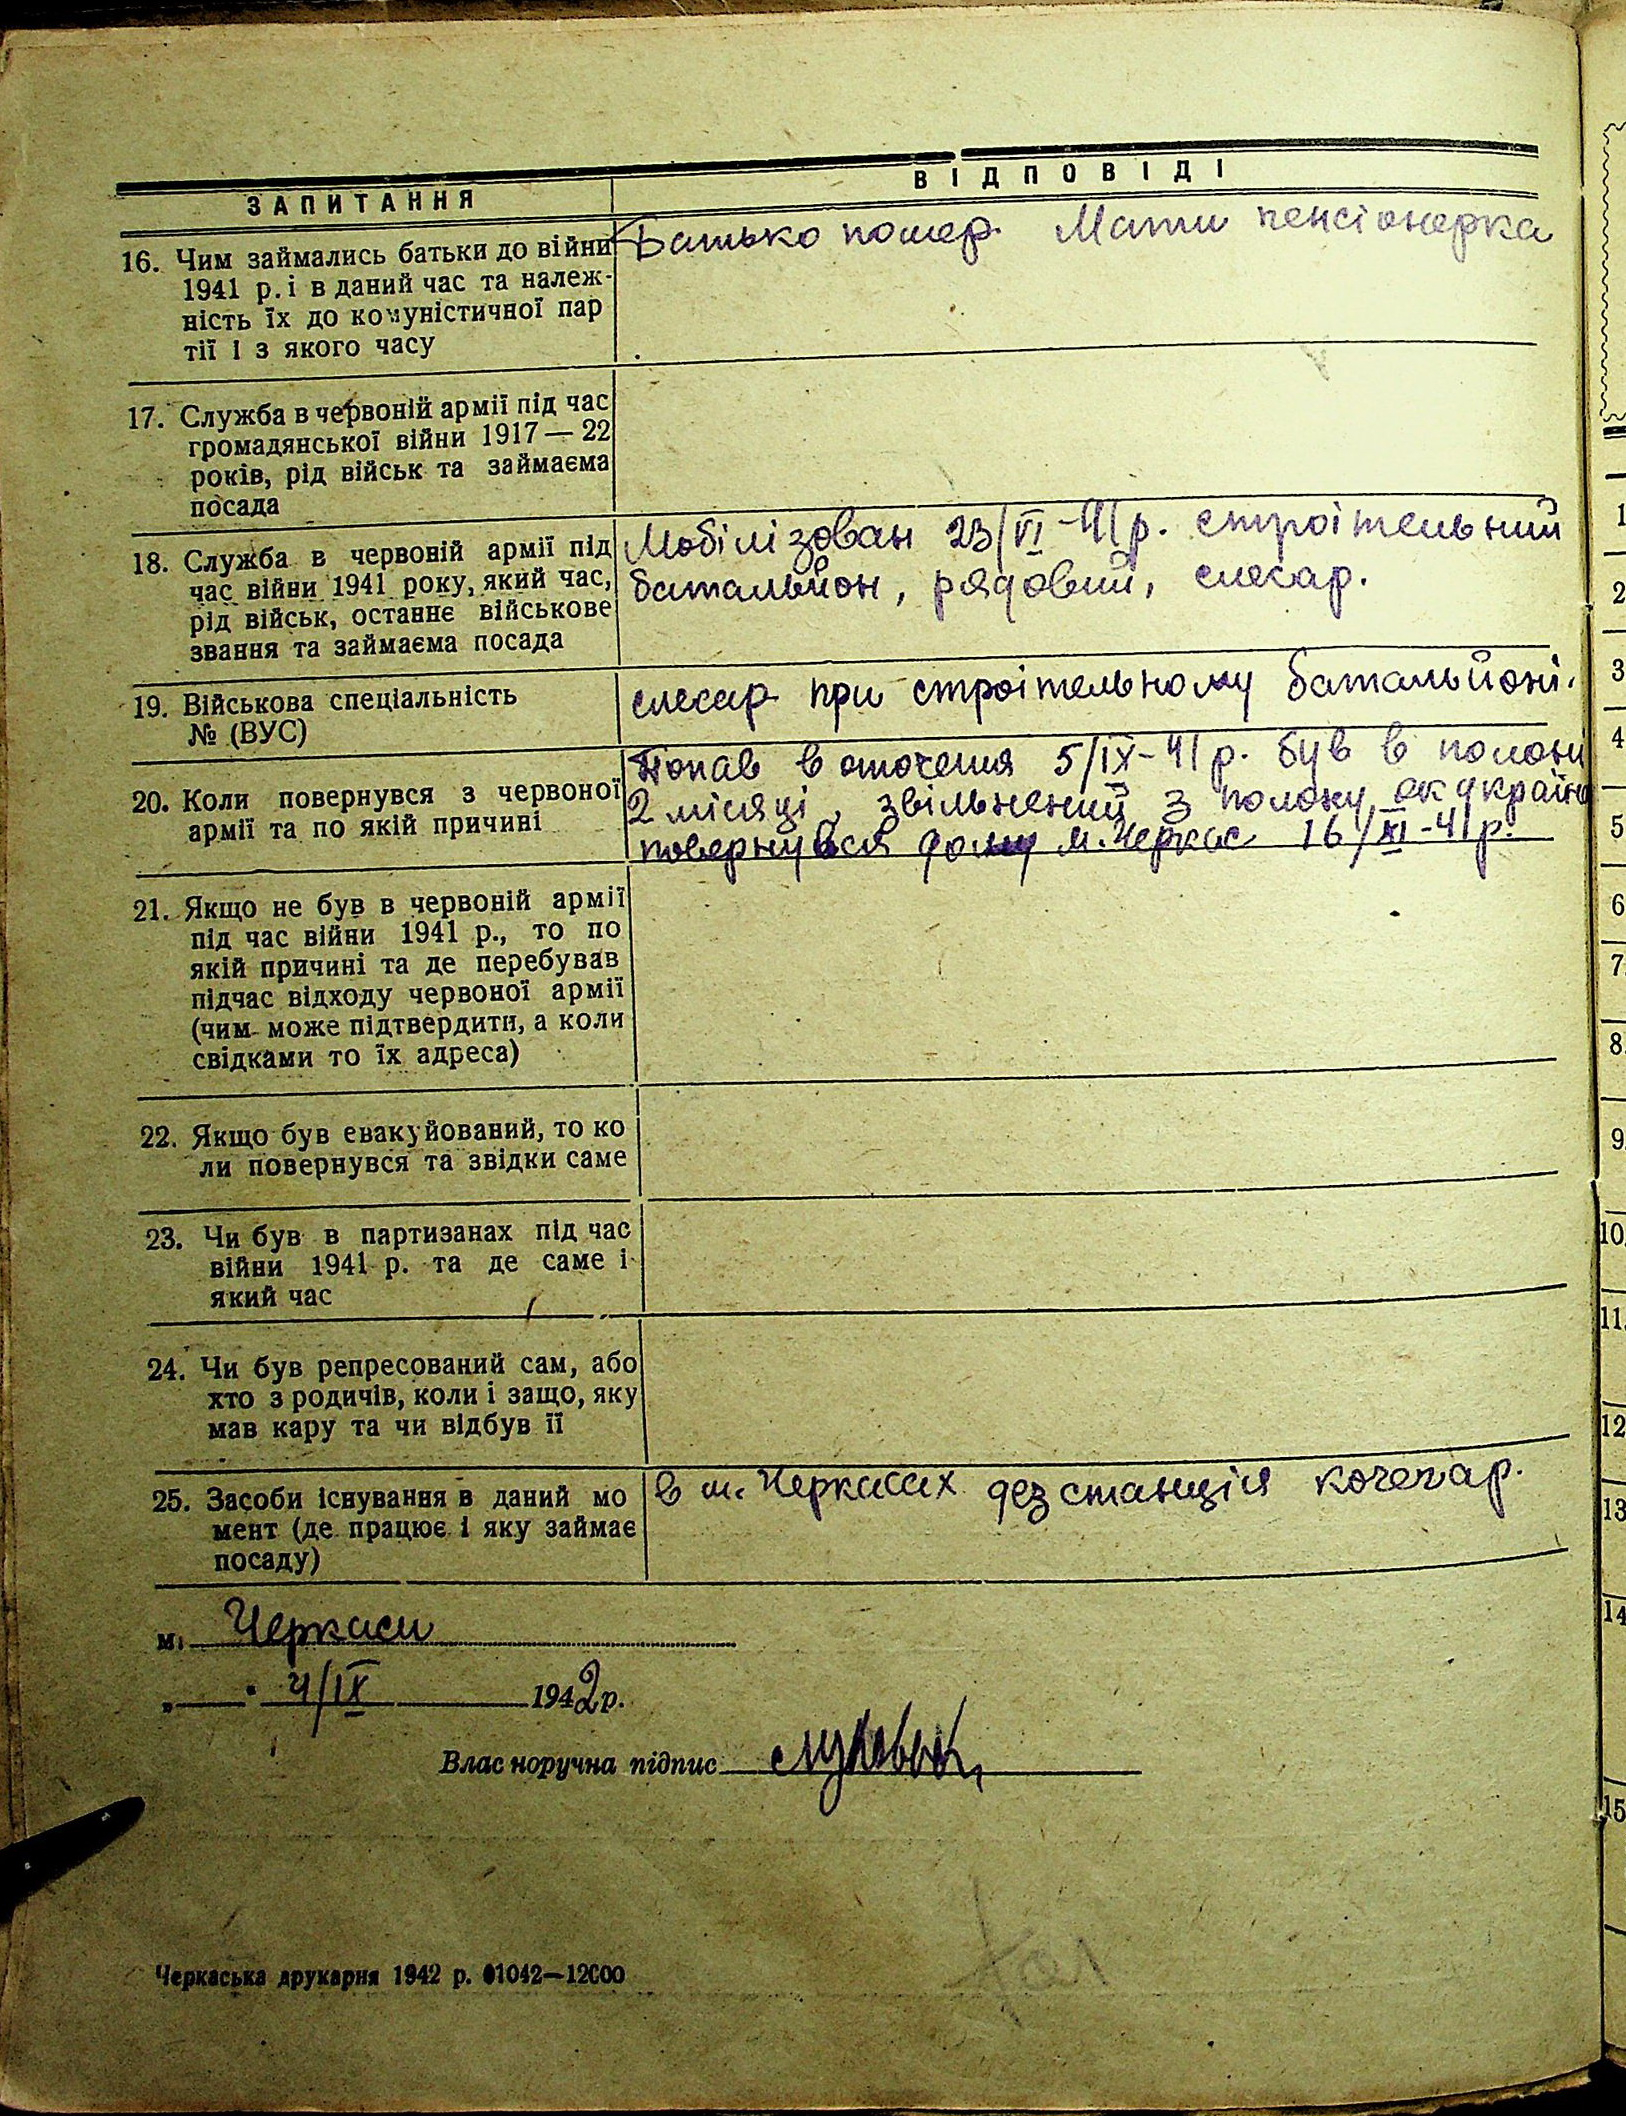 ЗАПИТАННЯ
ВІДПОВІДІ
16. Чим займались батьки до війни
1941 р. і в даний час та належ-
ність їх до комуністичної пар
тії і з якого часу
Батько помер. Мати пенсіонерка
17. Служба в червоній армії під час
громадянської війни 1917—22
років, рід військ та займаєма
посада
18. Служба в червоній армії під
час війни 1941 року, який час,
рід військ, останнє військове
звання та займаєма посада
Мобілізован 23/VI-41 р. строітельний
батальйон, рядовий, слесар.
19. Військова спеціальність
№ (ВУС)
слесар при строітельному батальйоні.
20. Коли повернувся з червоної
армії та по якій причині
Попав в оточення 5/IX-41 р. був в полоні
2 місяці, звільнений з полону як україн
повернувся дому м. Черкас 16/XI-41 р.
21. Якщо не був в червоній армії
під час війни 1941 р., то по
якій причині та де перебував
підчас відходу червоної армії
(чим може підтвердити, а коли
свідками то їх адреса)
22. Якщо був евакуйований, то ко
ли повернувся та звідки саме
23. Чи був в партизанах під час
війни 1941 р. та де саме і
який час
24. Чи був репресований сам, або
хто з родичів, коли і защо, яку
мав кару та чи відбув її
25. Засоби існування в даний мо
мент (де працює і яку займає
посаду)
в м. Черкасах дезстанція кочегар.
м. Черкаси
„ " 4/IX 1942 р.
Власноручна підпис
Черкаська друкарня 1942 р. 01042—12000
1
2
3
4
5
6
7
8.
9
10.
11.
12
13
14
15